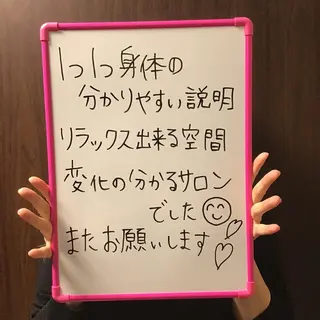 1つ1つ身体の
分かりやすい説明
リラックス出来る空間
変化の分かるサロン
でした
またお願いします